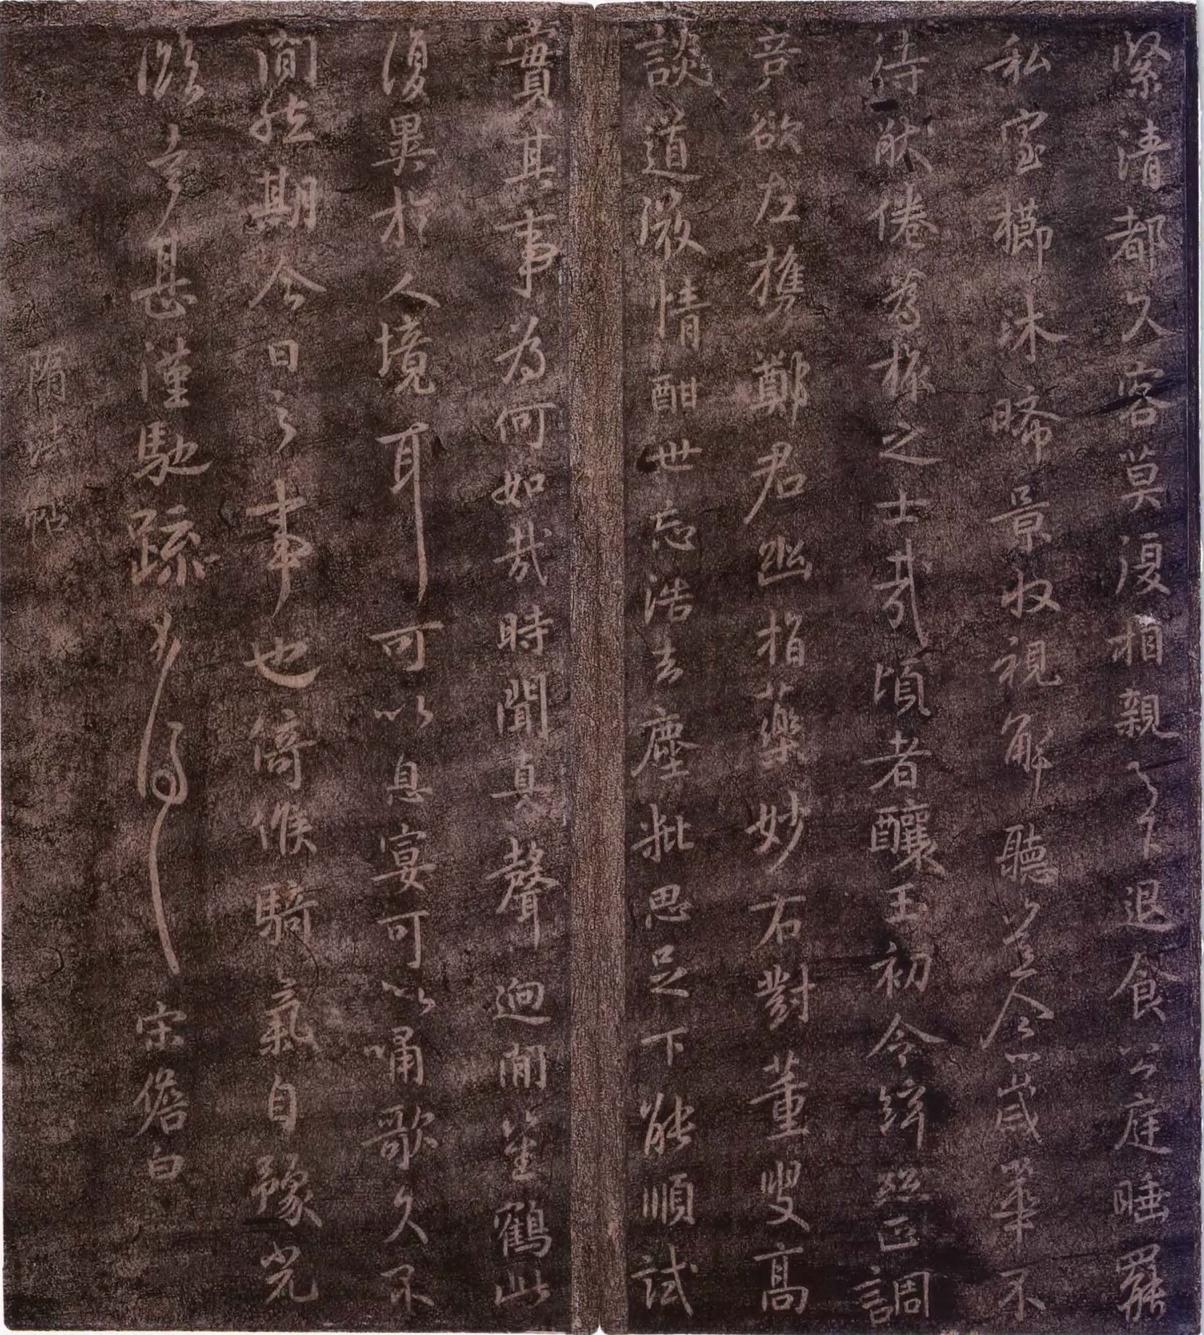 緊清都久容莫復相親足下退食公庭睡罷
私室櫛沐晞景收視解聽豈今歲華不
待猒倦為樵之士哉頃者釀玉初令絲正調
竟欲左攜鄭君幽指藥妙右對董叟高
談道嚴情酣世忘浩去塵粃思足下能順試
實其事為何如哉時聞真聲迥間笙鶴此
復異於人境耳可以息宴可以嘯歌久不
間然期今日之事也倚候騎氣自豫光
顏言甚謹馳疏宋儋白
隋法帖